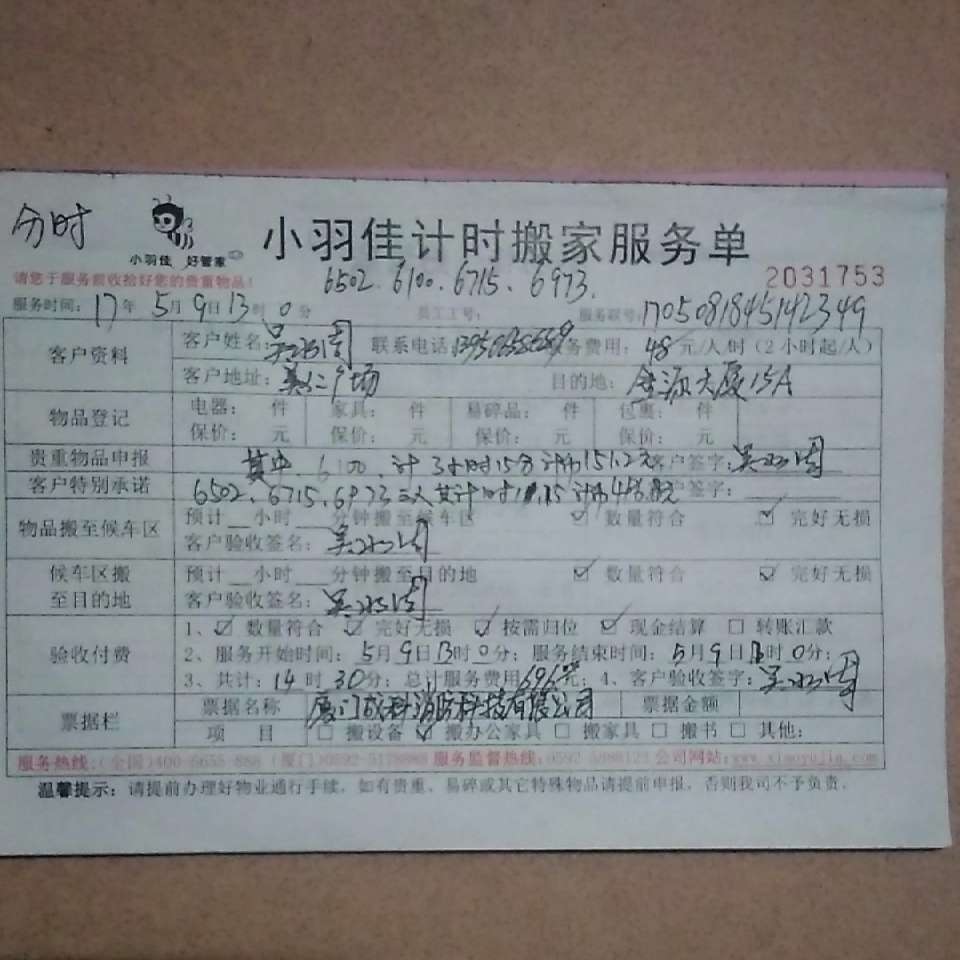 分时
小羽佳 好管家
小羽佳计时搬家服务单
请您于服务前收拾好您的贵重物品！
6502. 6100. 6715. 6973.
2031753
服务时间：17年 5月9日13时0分 员工工号： 服务联号：170508184514 2349
客户资料 客户姓名： 联系电话 务费用：48元/人/时（2小时起/人）
客户地址： 广场 目的地： 金源大厦15A
物品登记 电器： 件 家具： 件 易碎品： 件 包裹： 件
保价： 元 保价： 元 保价： 元 保价： 元
贵重物品申报 其中. 6100. 计 3小时15分 计 151.2元 客户签字：
客户特别承诺 6502、6715、6973三人 共计时 客户签字：
物品搬至候车区 预计__小时___分钟搬至候车区 ☑ 数量符合 ☑ 完好无损
客户验收签名：
候车区搬至目的地 预计__小时___分钟搬至目的地 ☑ 数量符合 ☑ 完好无损
客户验收签名：
验收付费 1、☑ 数量符合 ☑ 完好无损 ☑ 按需归位 ☑ 现金结算 □ 转账汇款
2、服务开始时间：5月9日13时0分；服务结束时间：5月9日 时0分；
3、共计：14时30分；总计服务费用696元；4、客户验收签字：
票据栏 票据名称 厦门 科消防科技有限公司 票据金额
项 目 □ 搬设备 ☑ 搬办公家具 □ 搬家具 □ 搬书 □ 其他：
服务热线：(全国)400-6655-888 (厦门)0592-5178988 服务监督热线：0592-5088122 公司网站：www.xiaoyujia.com
温馨提示：请提前办理好物业通行手续，如有贵重、易碎或其它特殊物品请提前申报，否则我司不予负责。